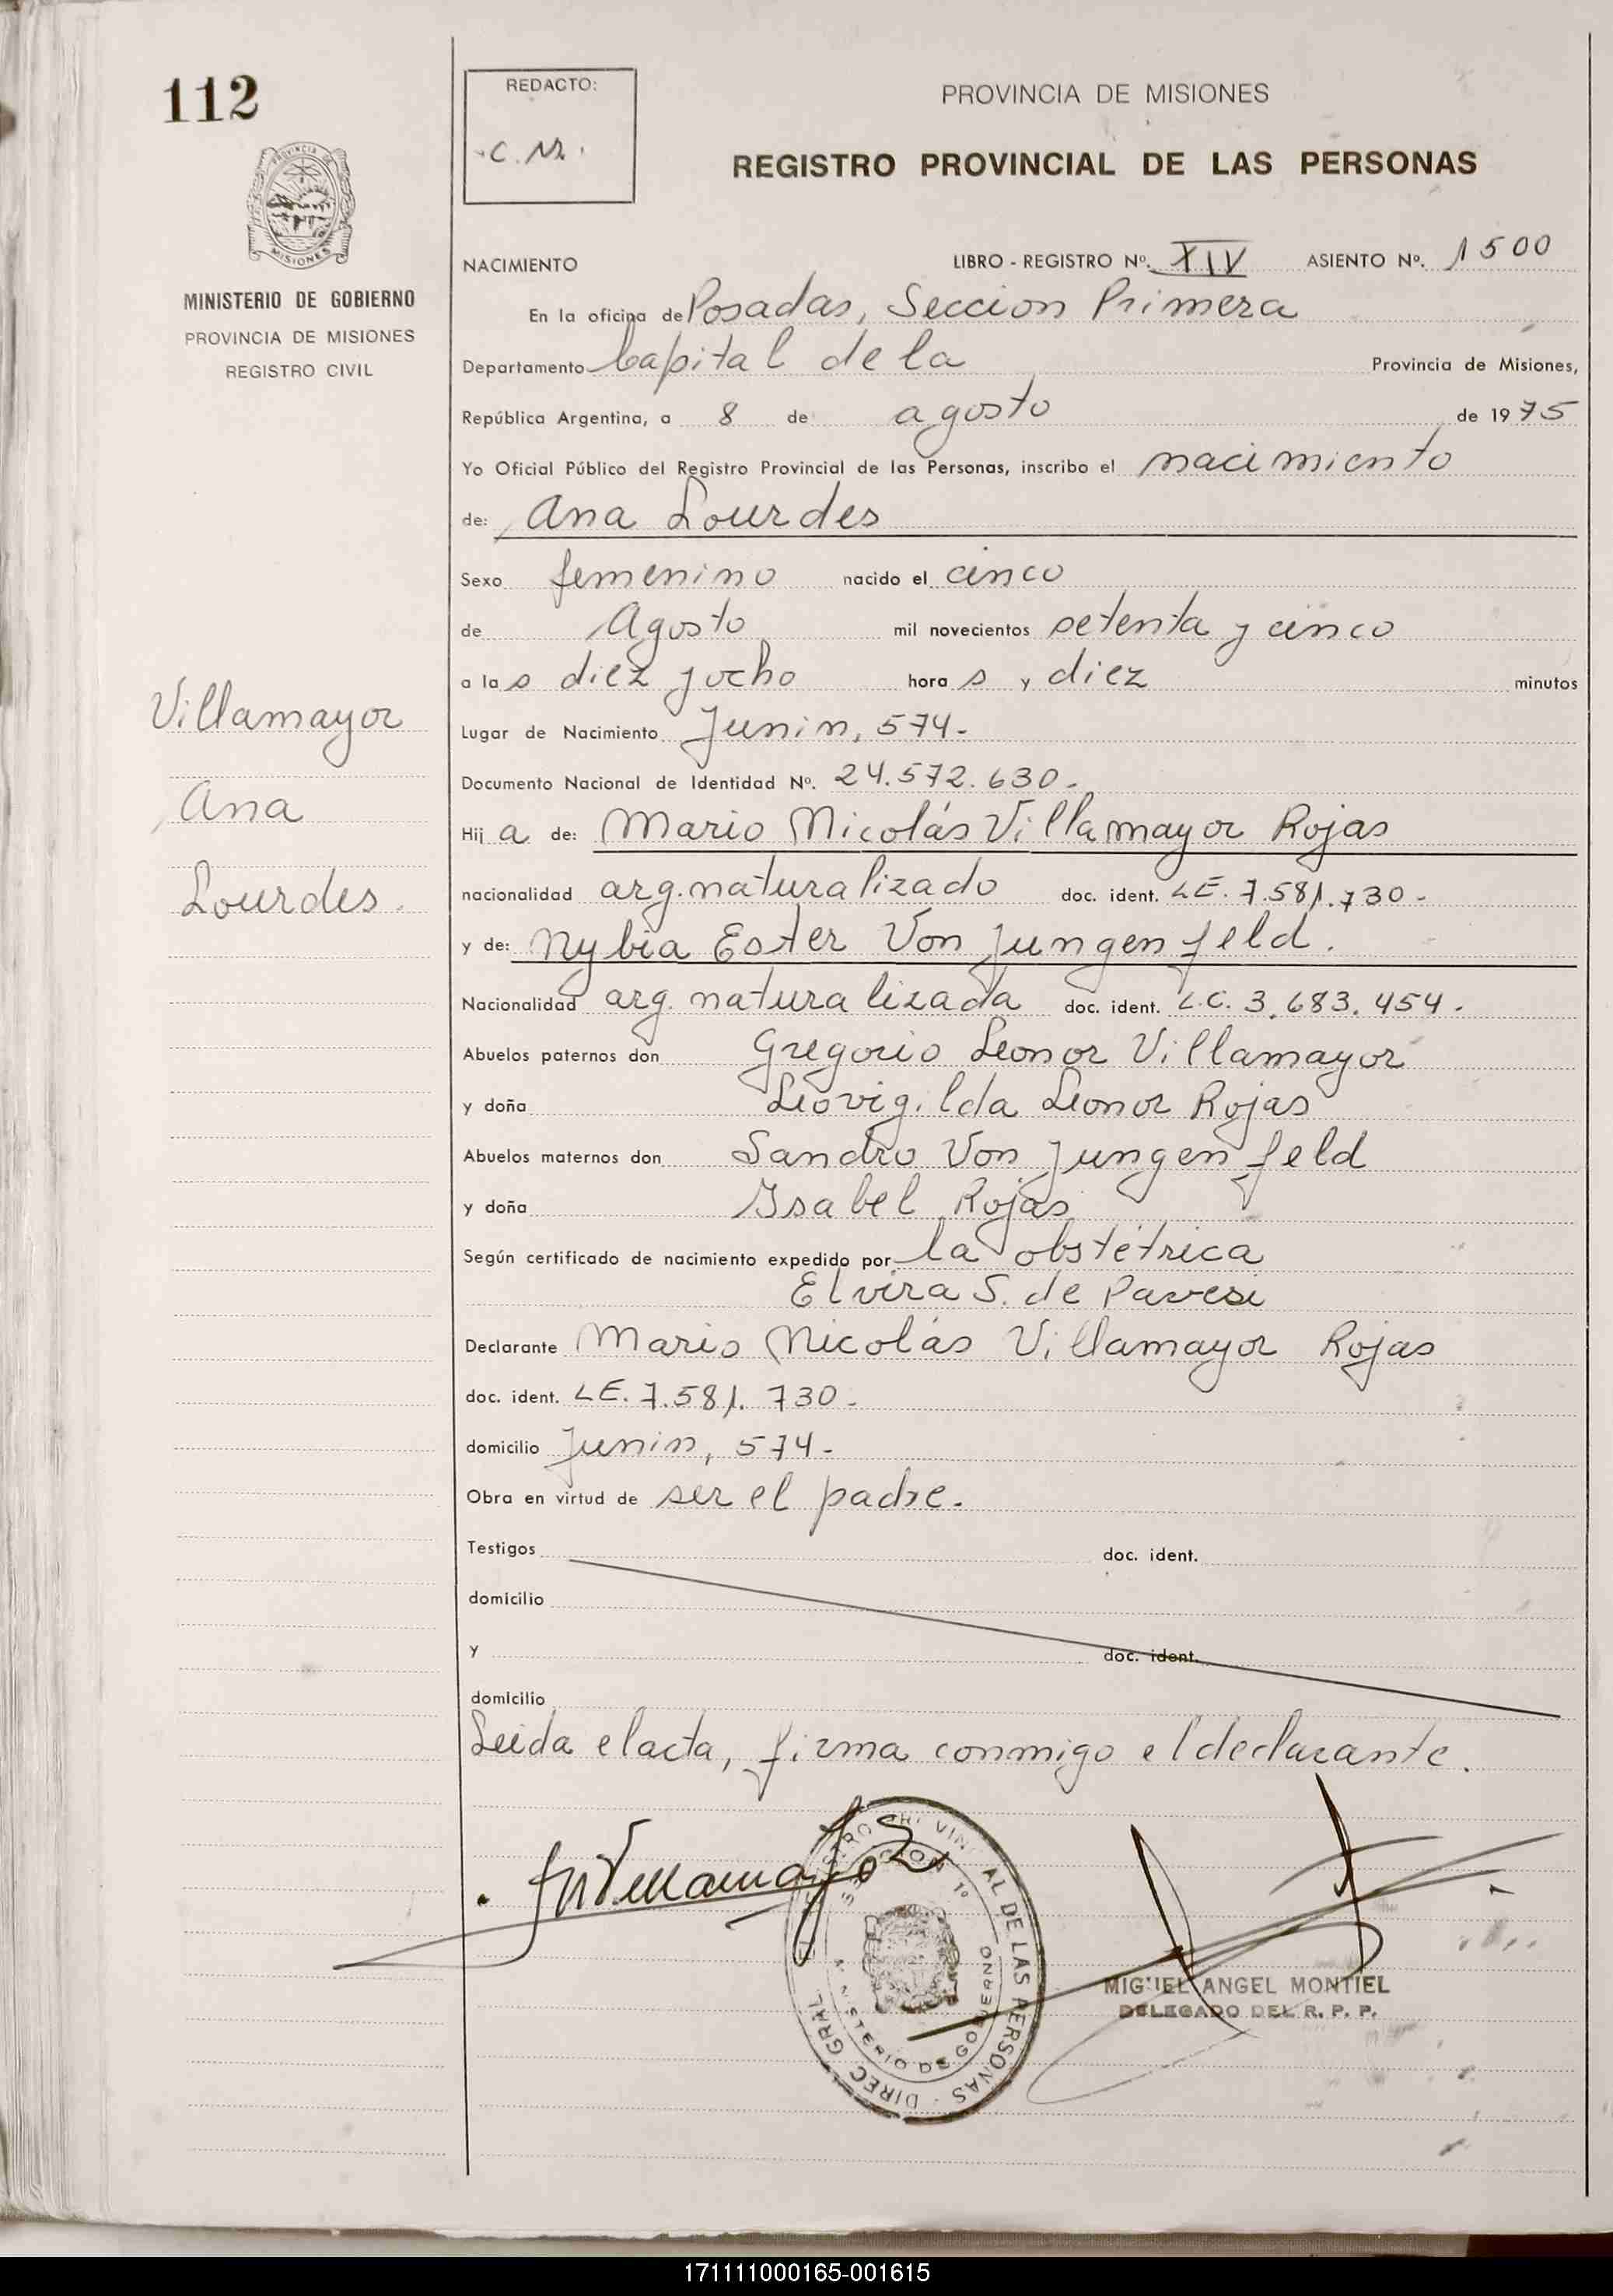 112
REDACTO:
C. M.
PROVINCIA DE MISIONES
REGISTRO PROVINCIAL DE LAS PERSONAS
PROVINCIA DE MISIONES
MINISTERIO DE GOBIERNO
PROVINCIA DE MISIONES
REGISTRO CIVIL
NACIMIENTO LIBRO - REGISTRO Nº. XIV ASIENTO Nº. 1500
En la oficina de Posadas, Seccion Primera
Departamento Capital de la Provincia de Misiones,
República Argentina, a 8 de agosto de 1975
Yo Oficial Público del Registro Provincial de las Personas, inscribo el nacimiento
de: Ana Lourdes
Sexo femenino nacido el cinco
de Agosto mil novecientos setenta y cinco
a las diez y ocho horas y diez minutos
Villamayor
Ana
Lourdes.
Lugar de Nacimiento Junin, 574-
Documento Nacional de Identidad Nº. 24.572.630-
Hija de: Mario Nicolás Villamayor Rojas
nacionalidad arg. naturalizado doc. ident. LE. 7.581.730-
y de: Nybia Ester Von Jungenfeld.
Nacionalidad arg. naturalizada doc. ident. L.C. 3.683.454.
Abuelos paternos don Gregorio Leonor Villamayor
y doña Leovigilda Leonor Rojas
Abuelos maternos don Sandro Von Jungenfeld
y doña Isabel Rojas
Según certificado de nacimiento expedido por la obstétrica
Elvira S. de Pavesi
Declarante Mario Nicolás Villamayor Rojas
doc. ident. LE. 7.581.730-
domicilio Junin, 574-
Obra en virtud de ser el padre.
Testigos doc. ident.
domicilio
y doc. ident.
domicilio
Leida el acta, firma conmigo el declarante.
DIREC GRAL DEL REGISTRO PROVINCIAL DE LAS PERSONAS
SECCION 1º
MINISTERIO DE GOBIERNO
MIGUEL ANGEL MONTIEL
DELEGADO DEL R. P. P.
171111000165-001615